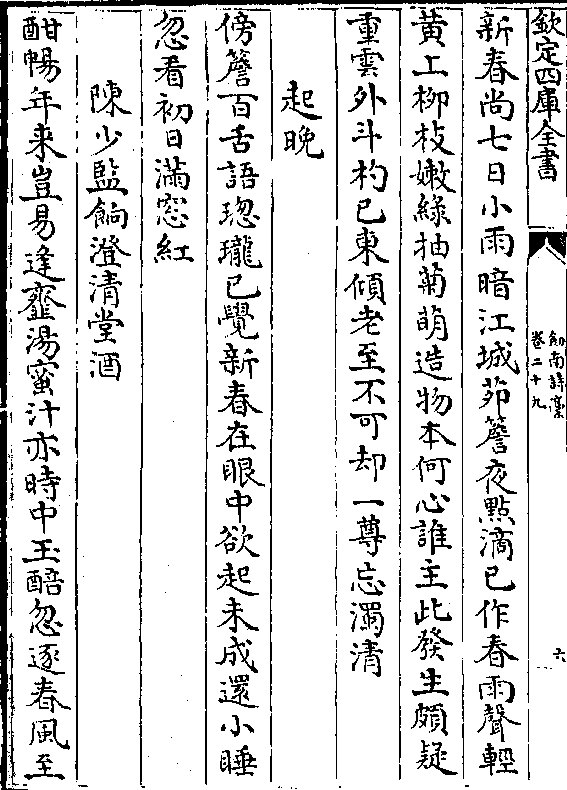 欽定四庫全書
劍南詩藁
卷二十九
六
新春尚七日小雨暗江城茆簷夜點滴已作春雨聲輕
黄上栁枝嫩綠抽菊萌造物本何心誰主此發生頗疑
重雲外斗杓已東傾老至不可却一尊忘濁清
起晚
傍簷百舌語璁瓏已覺新春在眼中欲起未成還小睡
忽看初日滿窓紅
陳少監餉澄清堂酒
酣暢年来豈易逢虀湯蜜汁亦時中玉醅忽逐春風至